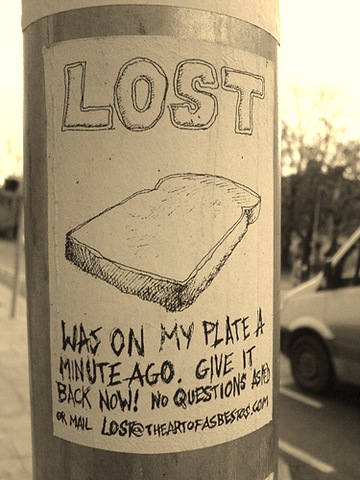 LOST
WAS ON MY PLATE A
MINUTE AGO. GIVE IT
BACK NOW! NO QUESTIONS ASKED
OR MAIL LOST@THEARTOFASBESTOS.COM